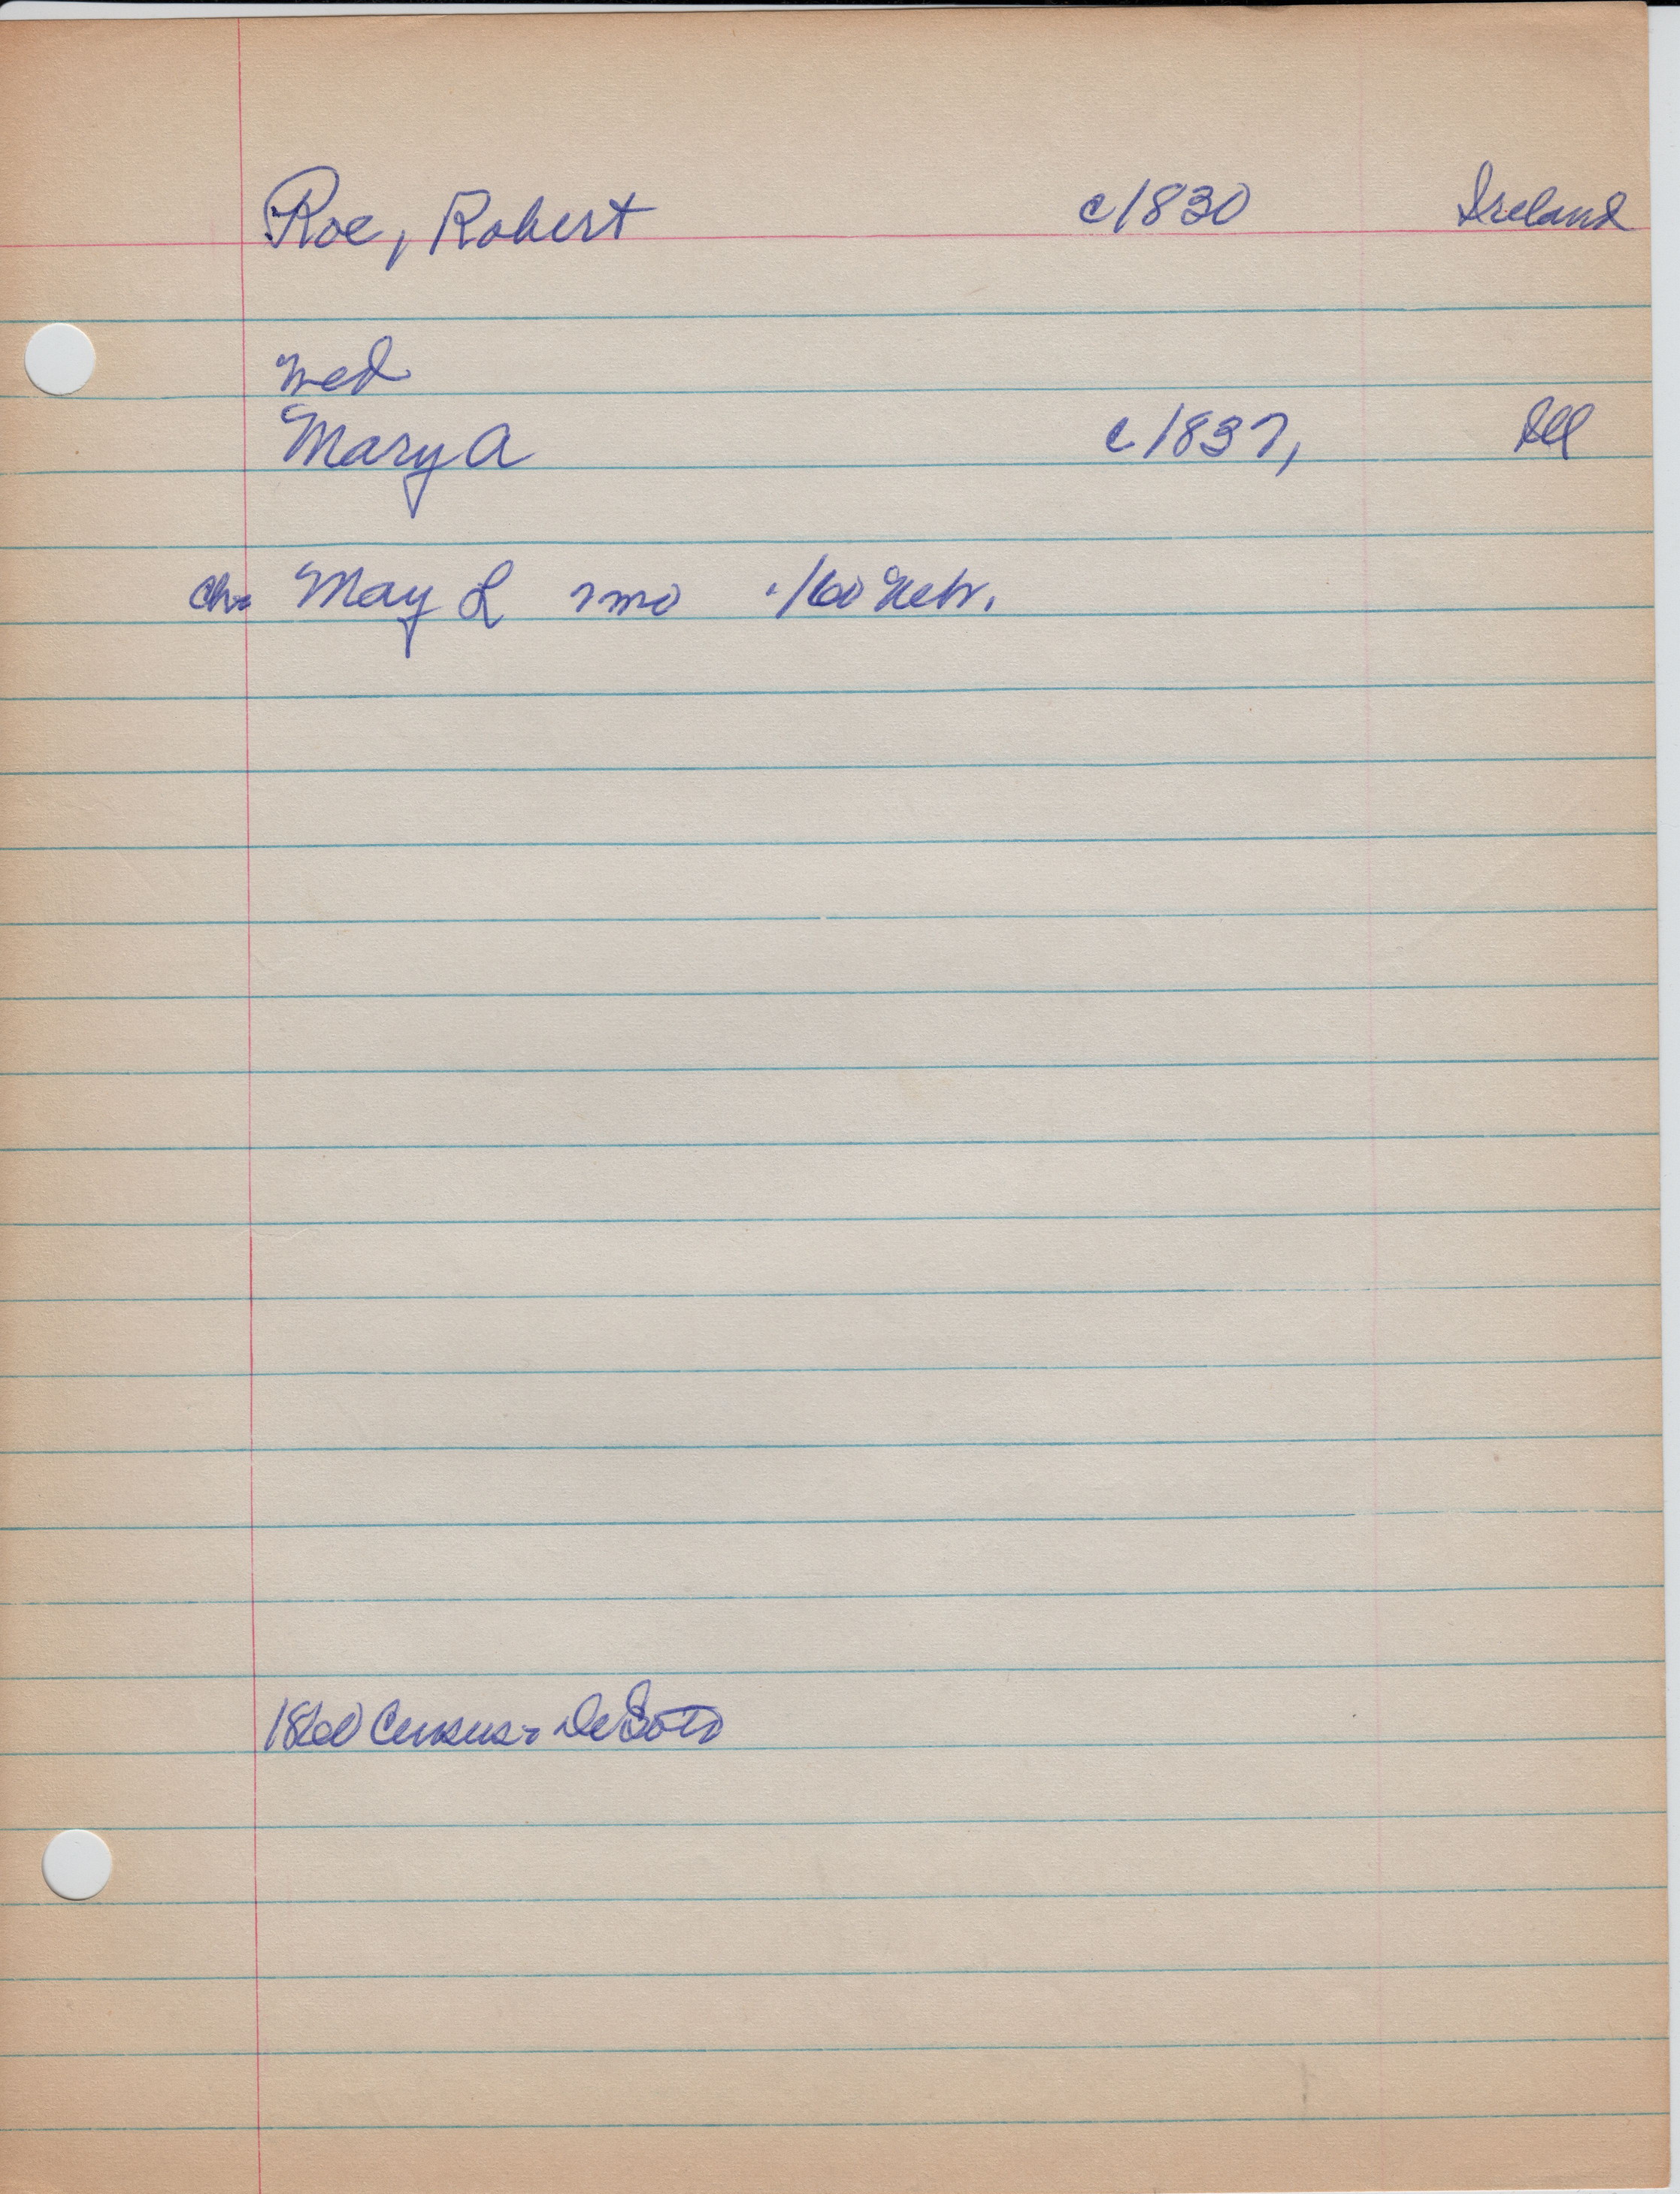 Roe, Robert c/1830 Ireland
med
Mary A c/1837, Ill
ch- May L 7mo /60 Nebr.
1860 Census - DeSoto